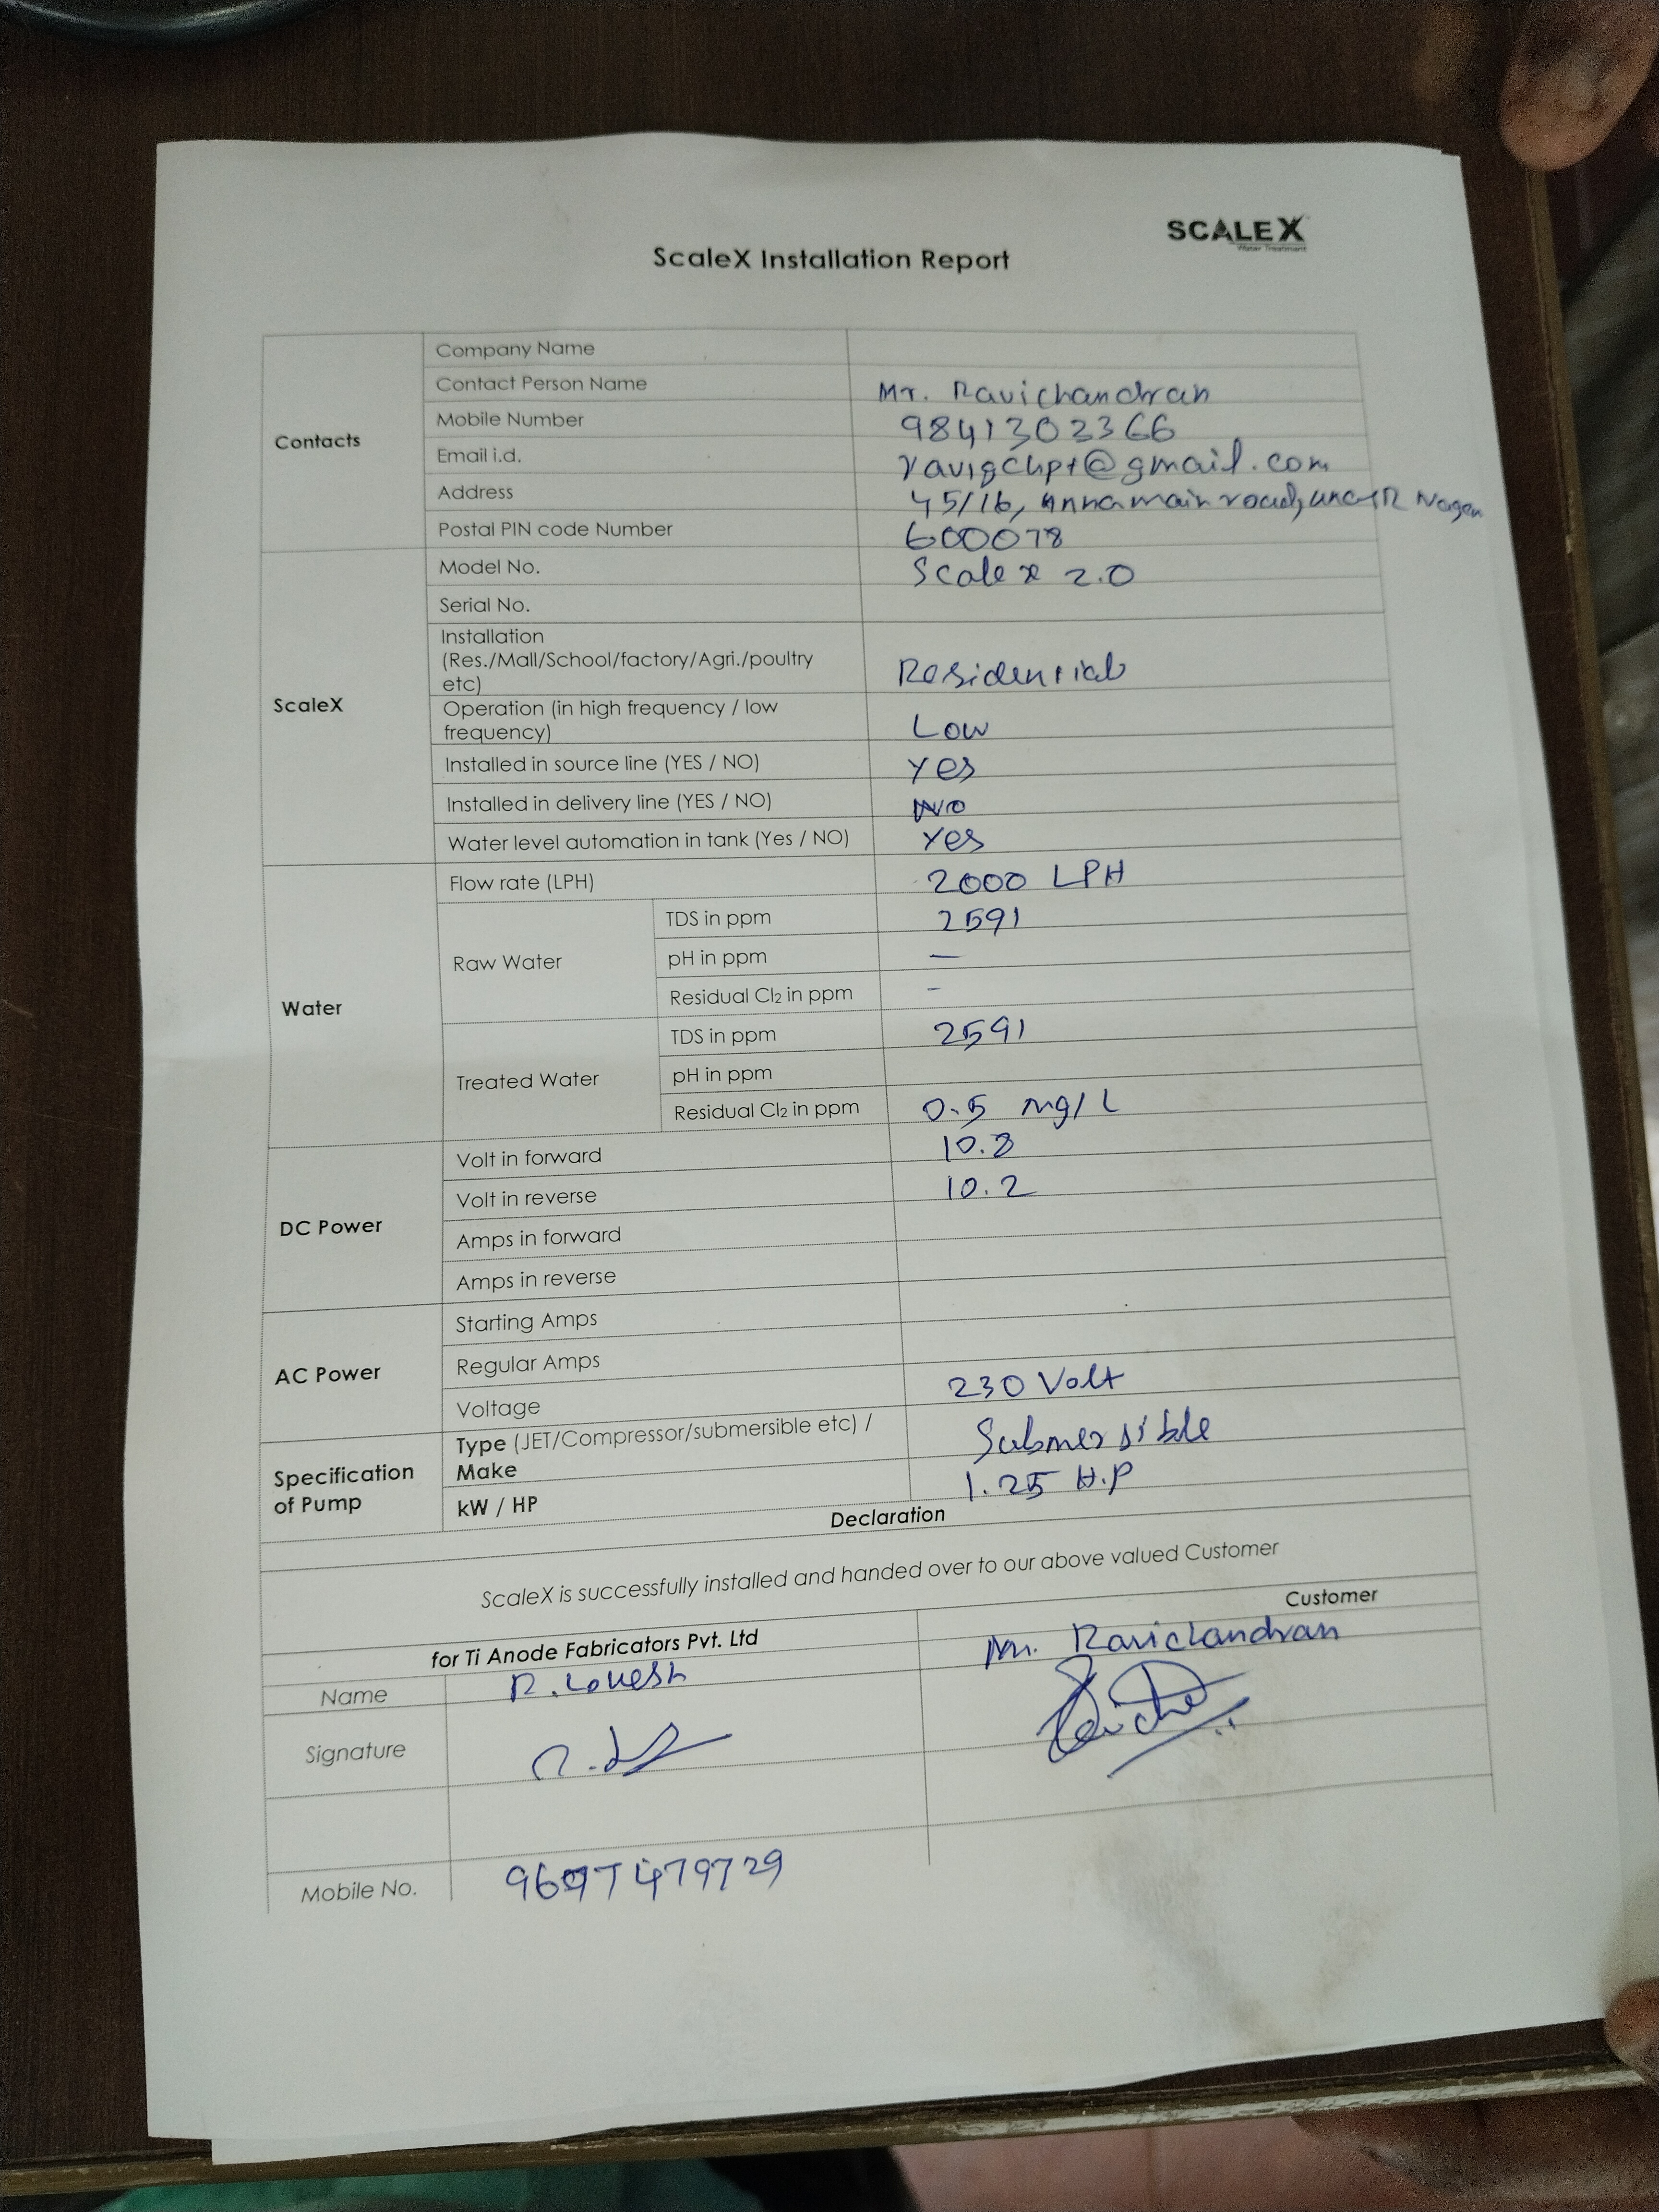 SCALEX
Water Treatment
ScaleX Installation Report
Contacts
Company Name
Contact Person Name Mr. Ravichandran
Mobile Number 9841302366
Email i.d. ravigchpt@gmail.com
Address 45/16, Anna main road, MGR Nagar
Postal PIN code Number 600078
ScaleX
Model No. Scale x 2.0
Serial No.
Installation
(Res./Mall/School/factory/Agri./poultry
etc) Residential
Operation (in high frequency / low
frequency) Low
Installed in source line (YES / NO) Yes
Installed in delivery line (YES / NO) NO
Water level automation in tank (Yes / NO) Yes
Water
Flow rate (LPH) 2000 LPH
Raw Water
TDS in ppm 2591
pH in ppm —
Residual Cl2 in ppm -
Treated Water
TDS in ppm 2591
pH in ppm
Residual Cl2 in ppm 0.5 mg/L
DC Power
Volt in forward 10.3
Volt in reverse 10.2
Amps in forward
Amps in reverse
AC Power
Starting Amps
Regular Amps
Voltage 230 Volt
Specification
of Pump
Type (JET/Compressor/submersible etc) /
Make Submersible
kW / HP 1.25 H.P
Declaration
ScaleX is successfully installed and handed over to our above valued Customer
for Ti Anode Fabricators Pvt. Ltd Customer
Name R. Lokesh Mr. Ravichandran
Signature
Mobile No. 9697479729